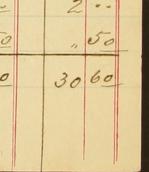 2 "
0 " 50
0 30 60